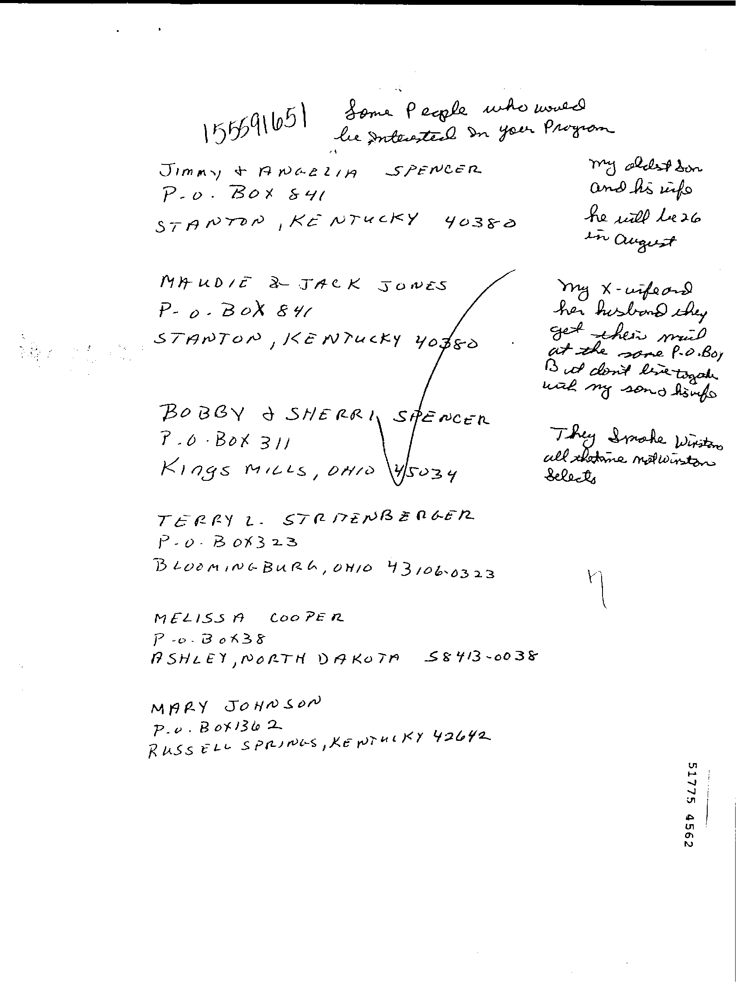 155591651
Some People who woued
be interested in your Program
Jimmy & ANGELIA SPENCER
P.O. BOX 841
STANTON, KENTUCKY 40380
my oldest son
and his wife
he will be 26
in august
MAUDIE & JACK JONES
P.O. BOX 841
STANTON, KENTUCKY 40380
my X-wife and
her husband they
get their mail
at the same P.O. Box
But don't live togather
with my son & his wife
BOBBY & SHERRI SPENCER
P.O. BOX 311
Kings MILLS, OHIO 45034
They Smoke Winston
all the time not Winston
Selects
TERRY L. STRITENBERGER
P.O. BOX 323
BLOOMINGBURG, OHIO 43106-0323
MELISSA COOPER
P.O. BOX 38
ASHLEY, NORTH DAKOTA 58413-0038
MARY JOHNSON
P.O. BOX 1362
RUSSELL SPRINGS, KENTUCKY 42642
51775 4562